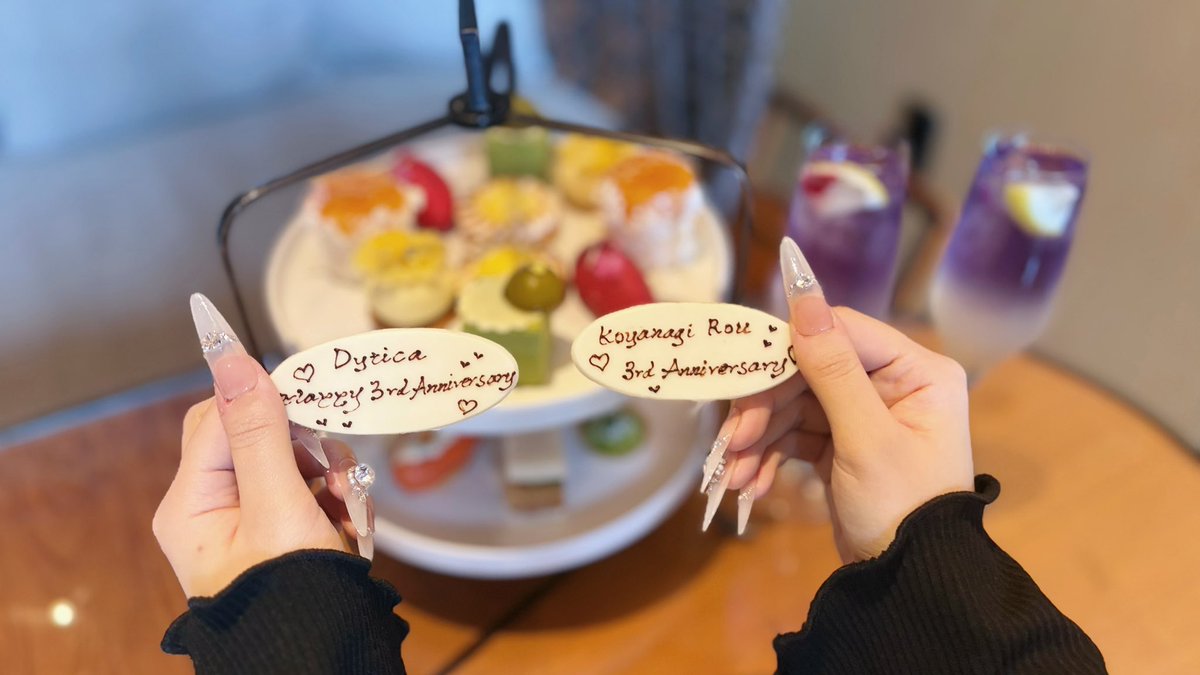 Dytica
Happy 3rd Anniversary
Koyanagi Rou
3rd Anniversary